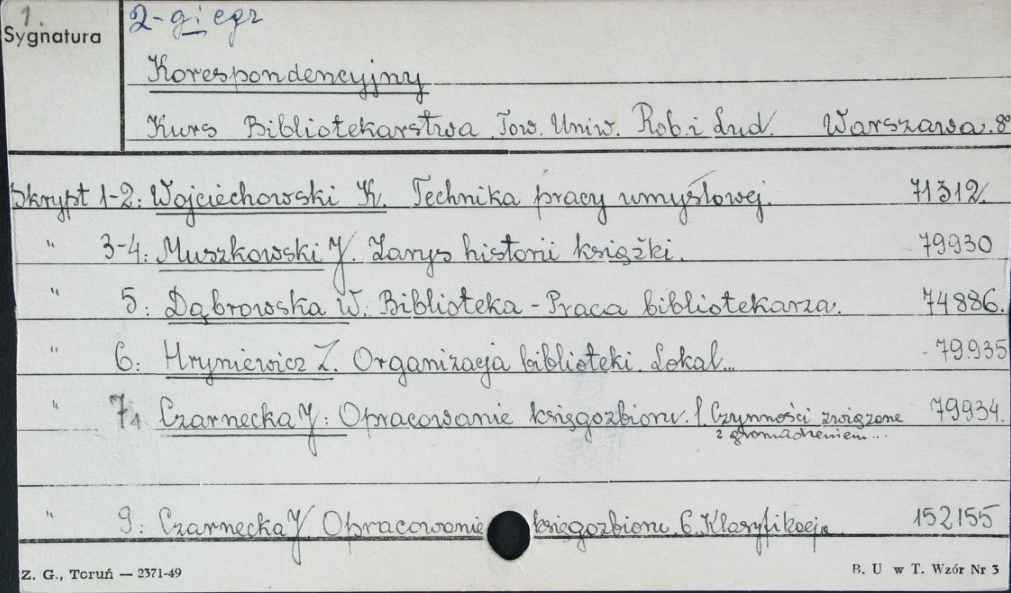 1.
Sygnatura
2-gi egz
Korespondencyjny
Kurs Bibliotekarstwa Tow. Uniw. Rob. i Lud. Warszawa. 8°
Skrypt 1-2: Wojciechowski K. Technika pracy umysłowej. 71312.
" 3-4: Muszkowski J. Zarys historii książki. 79930
" 5: Dąbrowska W. Biblioteka - Praca bibliotekarza. 74886.
" 6: Hryniewicz Z. Organizacja biblioteki. Lokal... 79935
" 7: Czarnecka J: Opracowanie księgozbioru. 1. Czynności związane 79934.
z gromadzeniem...
" 9: Czarnecka J. Opracowanie księgozbioru. 6. Klasyfikacja 152155
Z. G., Toruń — 2371-49
B. U w T. Wzór Nr 3